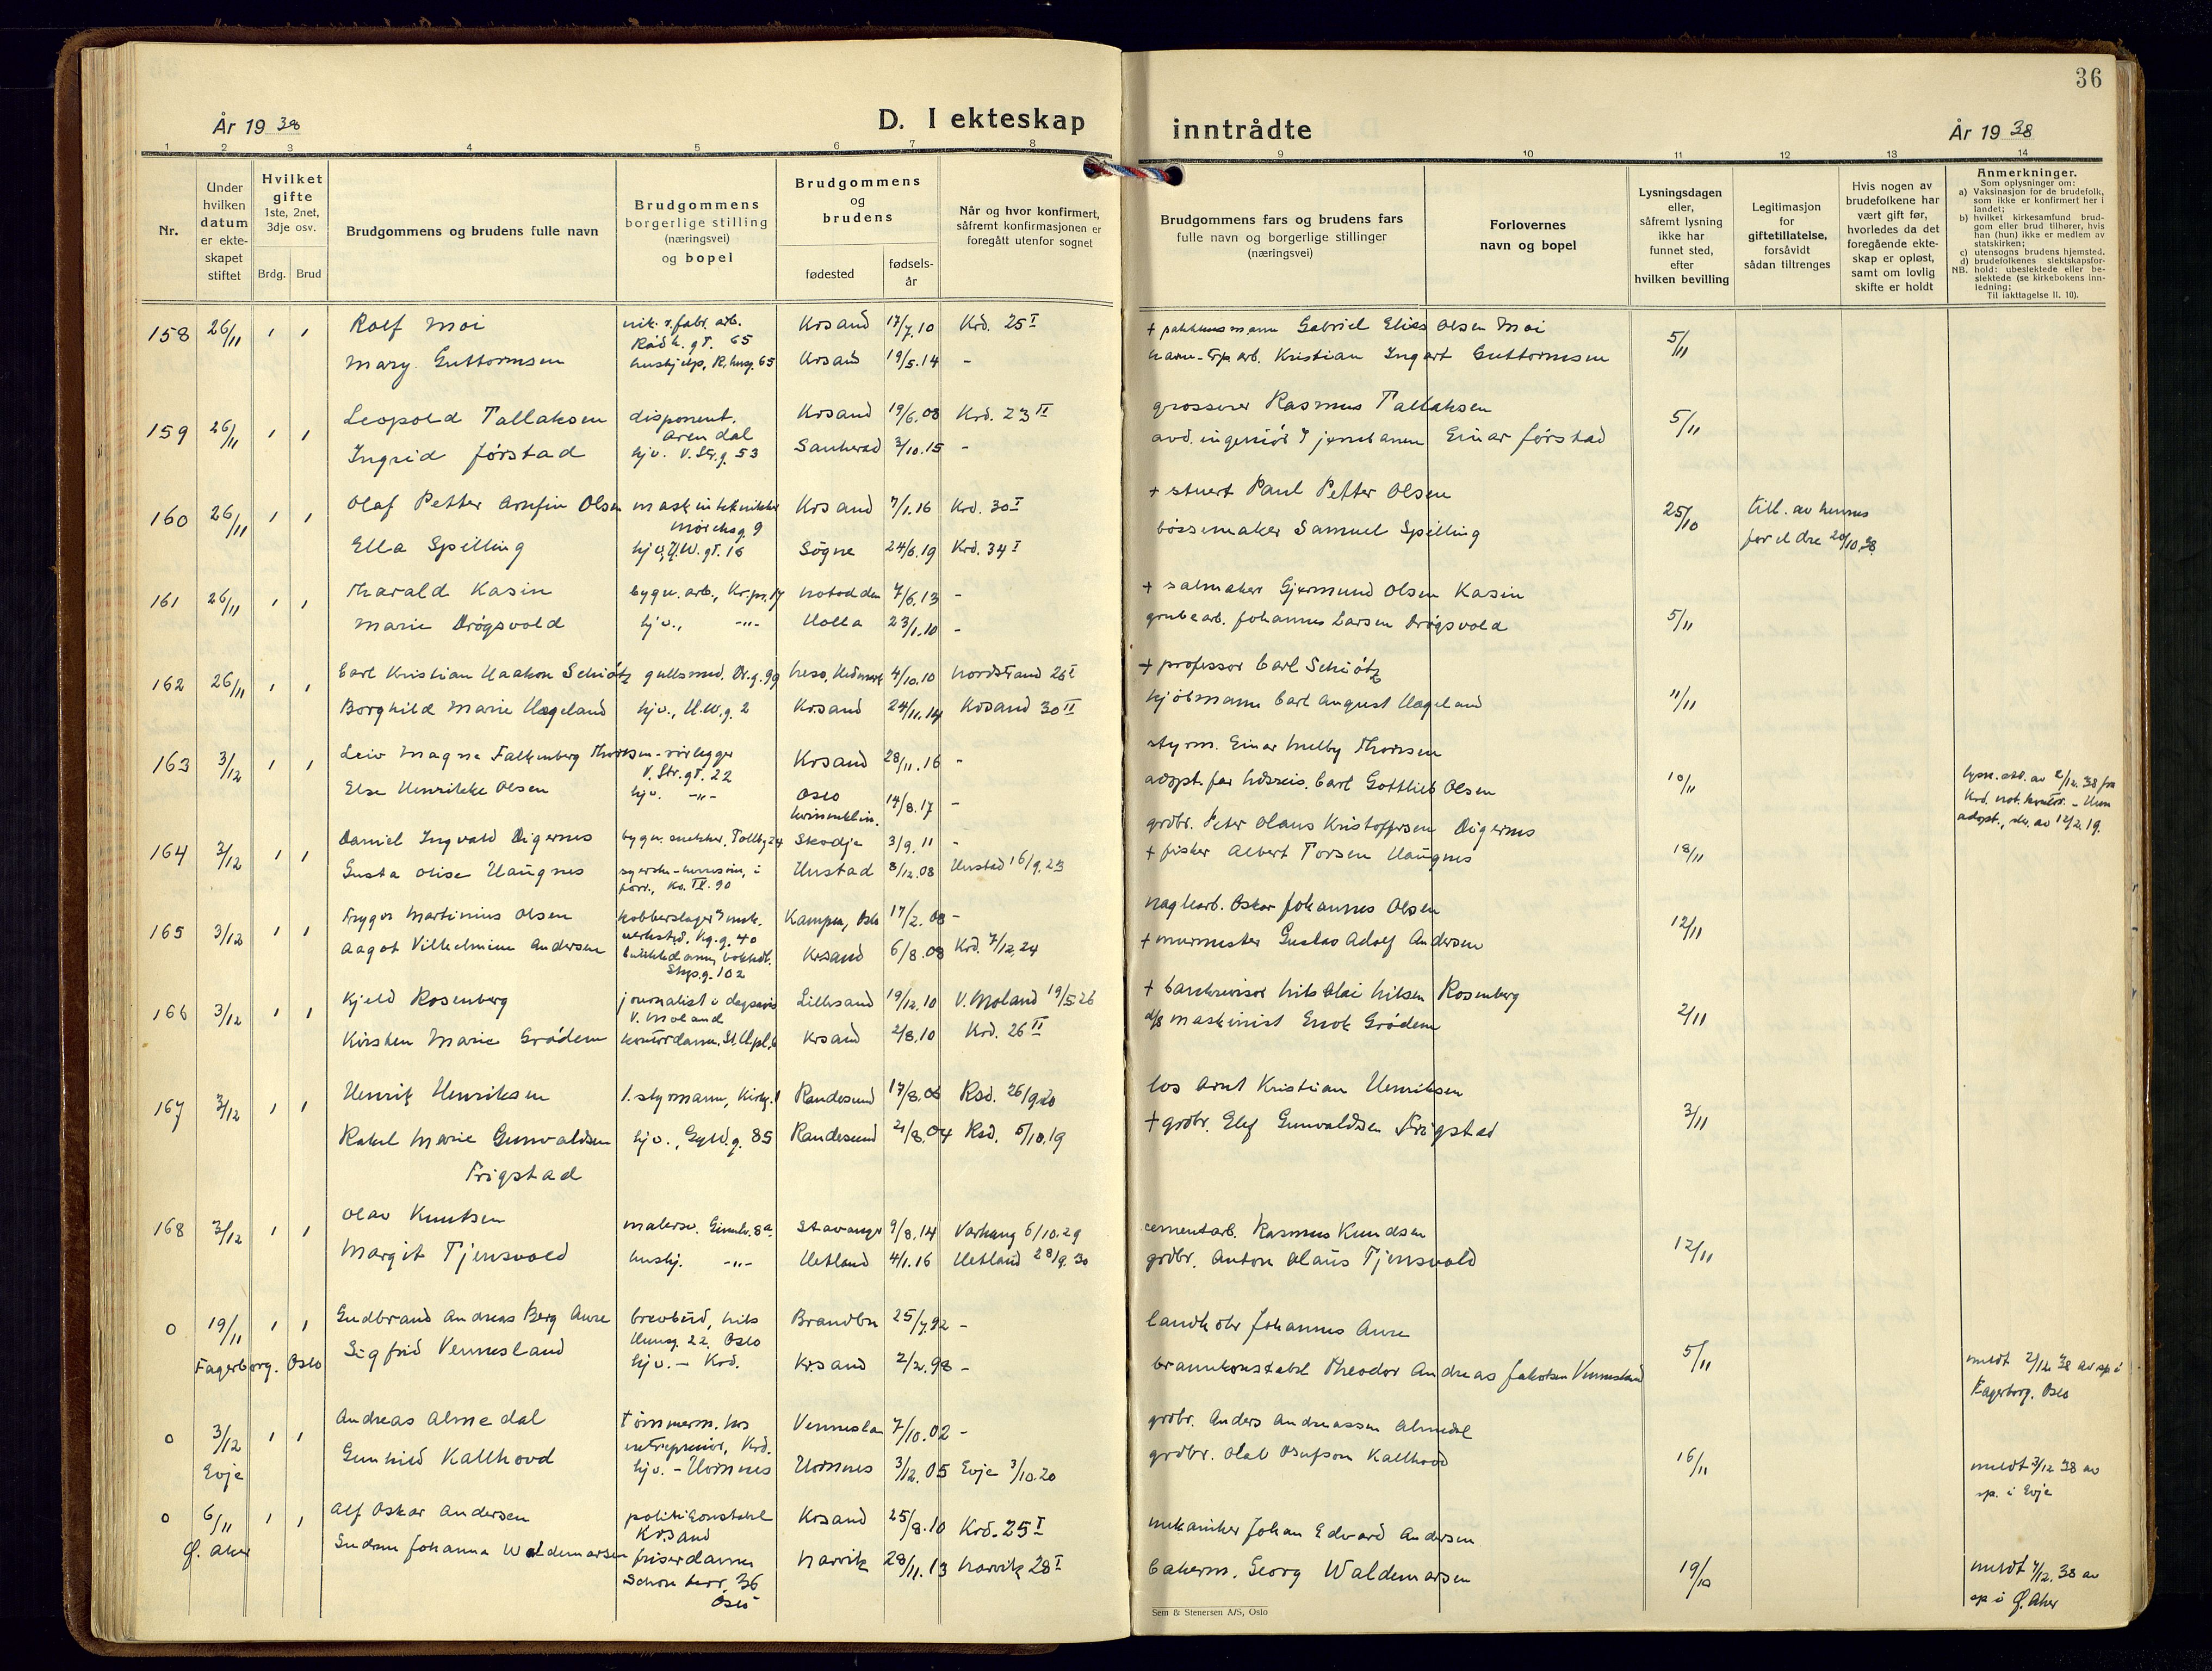 36
År 19 38
D. I ekteskap
inntrådte
År 19 38
1 2 3 4 5 6 7 8 9 10 11 12 13 14
Nr.
Under
hvilken
datum
er ekte-
skapet
stiftet
Hvilket
gifte
1ste, 2net,
3dje osv.
Brdg. Brud
Brudgommens og brudens fulle navn
Brudgommens
borgerlige stilling
(næringsvei)
og bopel
Brudgommens
og
brudens
fødested
fødsels-
år
Når og hvor konfirmert,
såfremt konfirmasjonen er
foregått utenfor sognet
Brudgommens fars og brudens fars
fulle navn og borgerlige stillinger
(næringsvei)
Forlovernes
navn og bopel
Lysningsdagen
eller,
såfremt lysning
ikke har
funnet sted,
efter
hvilken bevilling
Legitimasjon
for
giftetillatelse,
forsåvidt
sådan tiltrenges
Hvis nogen av
brudefolkene har
vært gift før,
hvorledes da det
foregående ekte-
skap er opløst,
samt om lovlig
skifte er holdt
Anmerkninger.
Som oplysninger om:
a) Vaksinasjon for de brudefolk,
som ikke er konfirmert her i
landet;
b) hvilket kirkesamfund brud-
gom eller brud tilhører, hvis
han (hun) ikke er medlem av
statskirken;
c) utensogns brudens hjemsted.
d) brudefolkenes slektskapsfor-
NB. hold: ubeslektede eller be-
slektede (se kirkebokens inn-
ledning;
Til iakttagelse II. 10).
158 26/11 1 1 Rolf Moi nik. r. fabr. arb. Krsand 17/7.10 Krd. 25 I + pakkhusmann Gabriel Elias Olsen Moi 5/11
Rådh. gt. 65
Mary Guttormsen hushjelp, R.husg. 65 Krsand 19/5.14 - Kristian Ingart Guttormsen
159 26/11 1 1 Leopold Tallaksen disponent. Krsand 19/6.08 Krd. 23 II grosserer Rasmus Tallaksen 5/11
Arendal
Ingrid Jørstad hjv. V. Str. g. 53 Sauherad 3/10.15 - avd. ingeniør v jernbanen Einar Jørstad
160 26/11 1 1 Olaf Petter Arnfin Olsen maskintekniker Krsand 7/1.16 Krd. 30 I + stuert Paul Petter Olsen 25/10 till. av hennes
Mørchsg. 9
Ella Spilling gt. 16 Søgne 24/6.19 Krd. 34 I bøssemaker Samuel Spilling foreldre 20/10.38.
161 26/11 1 1 Harald Kasin bygn. arb., Kr.pr. 17 Notodden 7/6.13 - + salmaker Gjermund Olsen Kasin 5/11
Marie Drøgsvold hjv., -"- Holla 23/1.10 - grubearb. Johannes Larsen Drøgsvold
162 26/11 1 1 Carl Kristian Haakon Schiøtz gullsmed. Dr. g. 99 Nes, Hedmark 4/10.10 Nordstrand 26 I + professor Carl Schiøtz 11/11
Borghild Marie Hægeland hjv., H.W.g. 2 Krsand 24/11.14 Krsand 30 II kjøbmann Carl August Hægeland
163 3/12 1 1 Leiv Magne Falkenberg Thorsen - rørlegger Krsand 28/11.16 - styrm. Einar Melby Thorsen 10/11
V. Str. gt. 22
Else Henrikke Olsen hjv. -"- Oslo 14/8.17 - adopt. far Carl Gottlieb Olsen
kvinneklin.
lysn. att. av 2/12.38 fra
Krd. not. kontor. - Hun
adopt., av 12/2.19.
164 3/12 1 1 Daniel Ingvald Digernes bygn. snekker, Tollb.g. 24 Skodje 3/9.11 - grdbr. Peter Olaus Kristoffersen Digernes 18/11
Gusta Olise Haugnes Hustad 8/12.08 Hustad 16/9.23 + fisker Albert Torsen Haugnes
Ko. IV. 90
165 3/12 1 1 Trygve Martinius Olsen kobberslager v mek. Kampen, Oslo 17/2.08 - naglearb. Oskar Johannes Olsen 12/11
verksted, Kg. g. 40
Aagot Vilhelmine Andersen butikkdame, bokhdl. Krsand 6/8.08 Krd. 7/12.24 + murmester Gustav Adolf Andersen
Skip.g. 102
166 3/12 1 1 Kjeld Rosenberg journalist i dagsavis Lillesand 19/12.10 V. Moland 19/5.26 + bankrevisor Nils Olai Nilsen Rosenberg 2/11
V. Moland
Kirsten Marie Grødem kontordame, St. H.pl. 6 Krsand 2/8.10 Krd. 26 II d/s maskinist Enok Grødem
167 3/12 1 1 Henrik Henriksen 1. styrmann, Kirkg. 1 Randesund 17/8.05 Rsd. 26/9.20 los Arnt Kristian Henriksen 3/11
Rakel Marie Gunvaldsen hjv., Gyld. g. 85 Randesund 21/8.04 Rsd. 5/10.19 + grdbr. Elef Gunvaldsen Frigstad
Frigstad
168 3/12 1 1 Olav Knutsen malersv. Gimlev. 8a. Stavanger 9/8.14 Varhaug 6/10.29 cementarb. Rasmus Knudsen 12/11
Margit Tjensvold hushj. -"- Hetland 4/1.16 Hetland 28/9.30 grdbr. Anton Olaus Tjensvold
0 19/11 1 1 Gudbrand Andreas Berg Aure brevbud, Nils Brandbu 25/7.92 - landh. Johannes Aure 5/11
Huusg. 22, Oslo
Fagerborg. Oslo Sigfrid Vennesland hjv. - Krd. Krsand 2/2.98 - brannkonstabel Theodor Andreas Jakobsen Vennesland
meldt 2/12 38 av sp i
Fagerborg, Oslo
0 3/12 1 1 Andreas Almedal tømmerm. hos Vennesla 7/10.02 - grdbr. Anders Andreassen Almedal 16/11
entreprenør, Krd.
Evje Gunhild Kallhovd hjv. - Hornnes Hornnes 3/12.05 Evje 3/10.20 grdbr. Olav Osufson Kallhovd
meldt 3/12 38 av
sp. i Evje
0 6/11 1 1 Alf Oskar Andersen politikonstabel Krsand 25/8.10 Krd. 25 I mekaniker Johan Edvard Andersen 19/10
Krsand
Ø. Aker Gudrun Johanna Waldemarsen friserdame Narvik 28/11.13 Narvik 28 I bakerm. Georg Waldemarsen
36
Oslo
meldt 7/12.38 av
sp i Ø. Aker
Sem & Stenersen A/S, Oslo